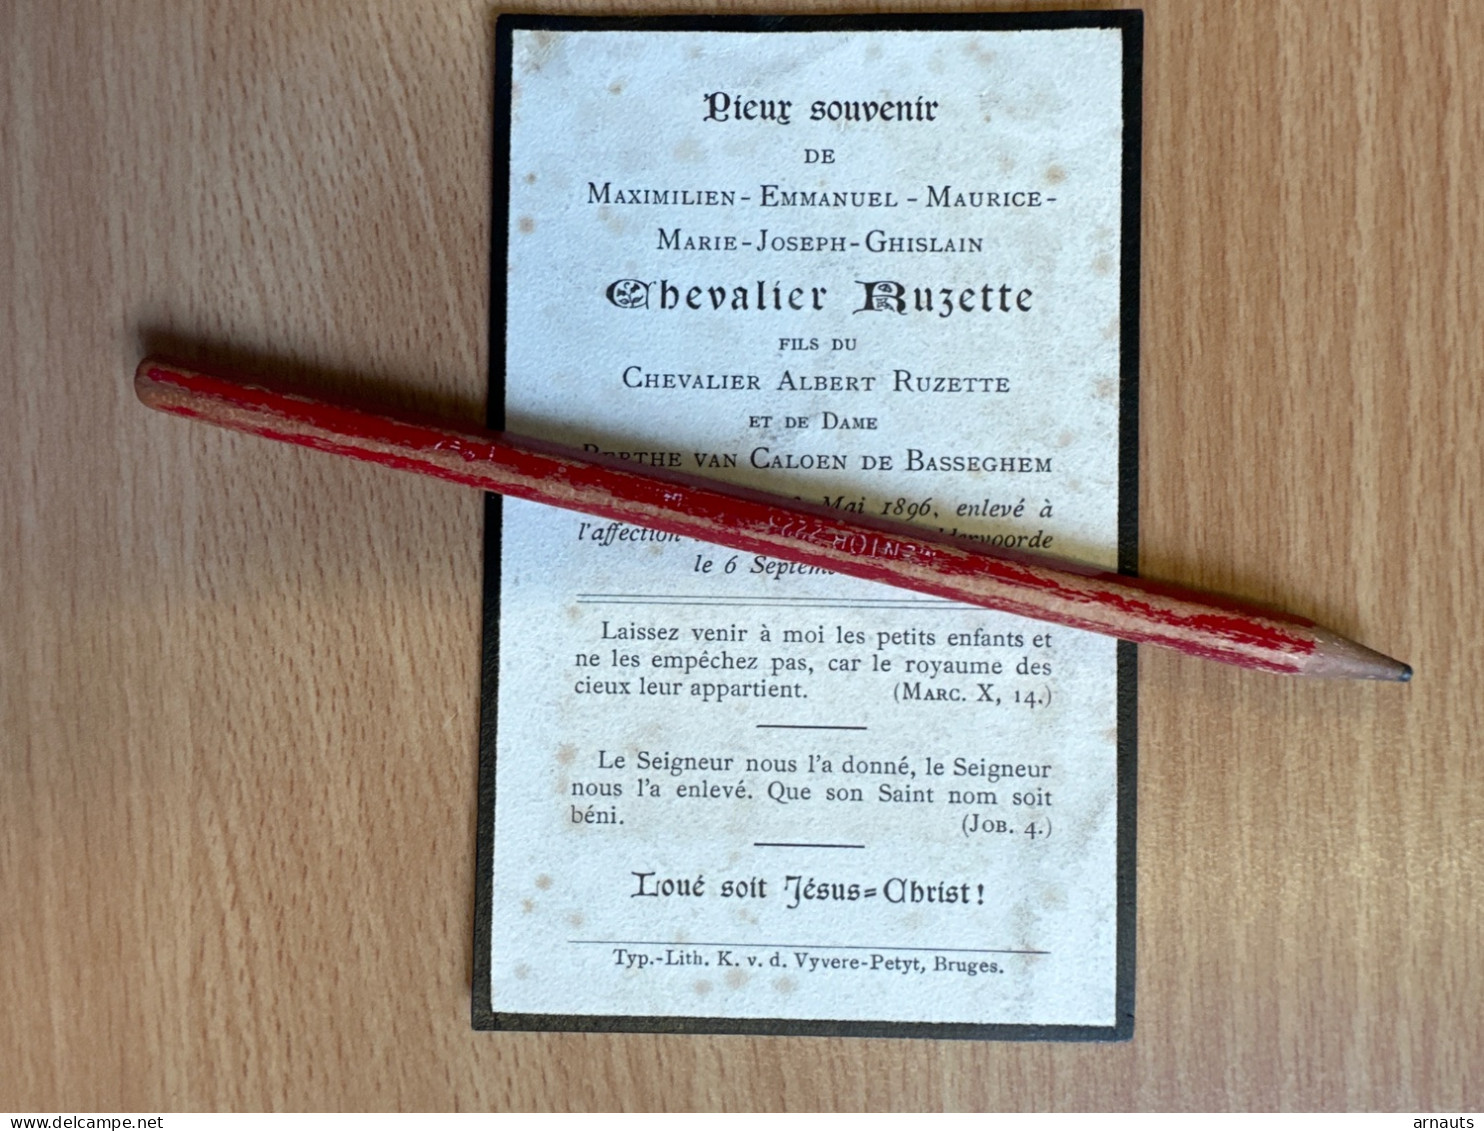 Pieux souvenir
DE
MAXIMILIEN - EMMANUEL - MAURICE-
MARIE-JOSEPH-GHISLAIN
Chevalier Ruzette
FILS DU
CHEVALIER ALBERT RUZETTE
ET DE DAME
BERTHE VAN CALOEN DE BASSEGHEM
Mai 1896, enlevé à
l'affection
le 6
Laissez venir à moi les petits enfants et
ne les empêchez pas, car le royaume des
cieux leur appartient. (MARC. X, 14.)
Le Seigneur nous l'a donné, le Seigneur
nous l'a enlevé. Que son Saint nom soit
béni. (JOB. 4.)
Loué soit Jésus=Christ!
Typ.-Lith. K. v. d. Vyvere-Petyt, Bruges.
delcampe.net
arnauts